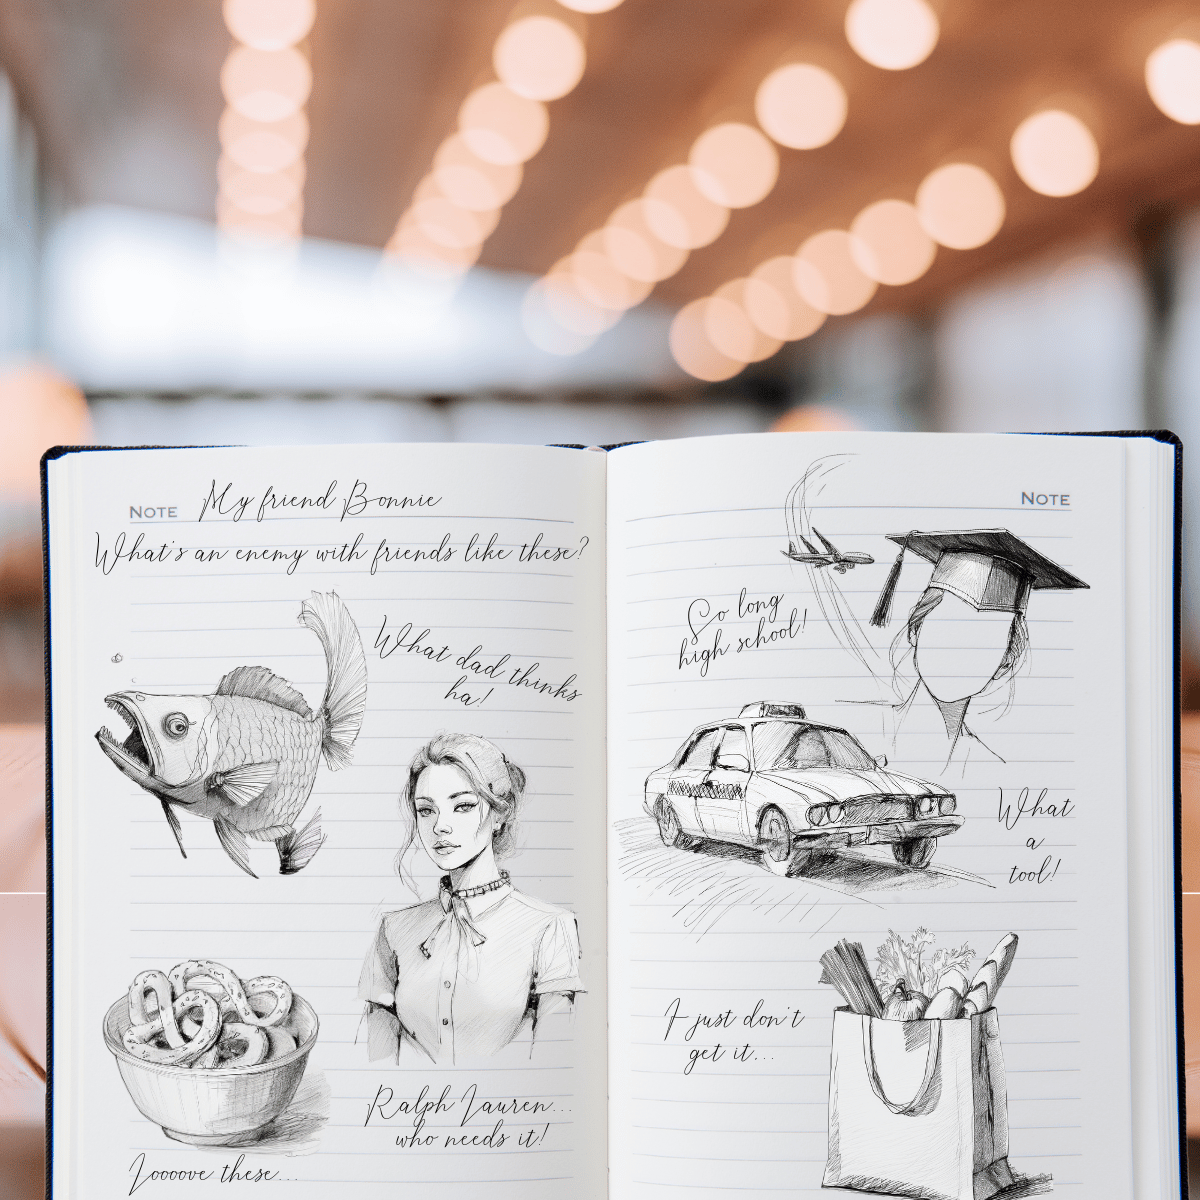 NOTE My friend Bonnie
What's an enemy with friends like these?
What dad thinks
ha!
Ralph Lauren...
who needs it!
Looove these...
NOTE
So long
high school!
What
a
tool!
I just don't
get it...